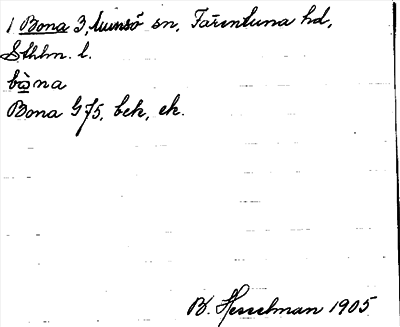 1 Bona 3, Munsö sn, Färentuna hd,
Sthlm. l.
bò̲na
Bona G 75, bek, ek.
B. Hesselman 1905